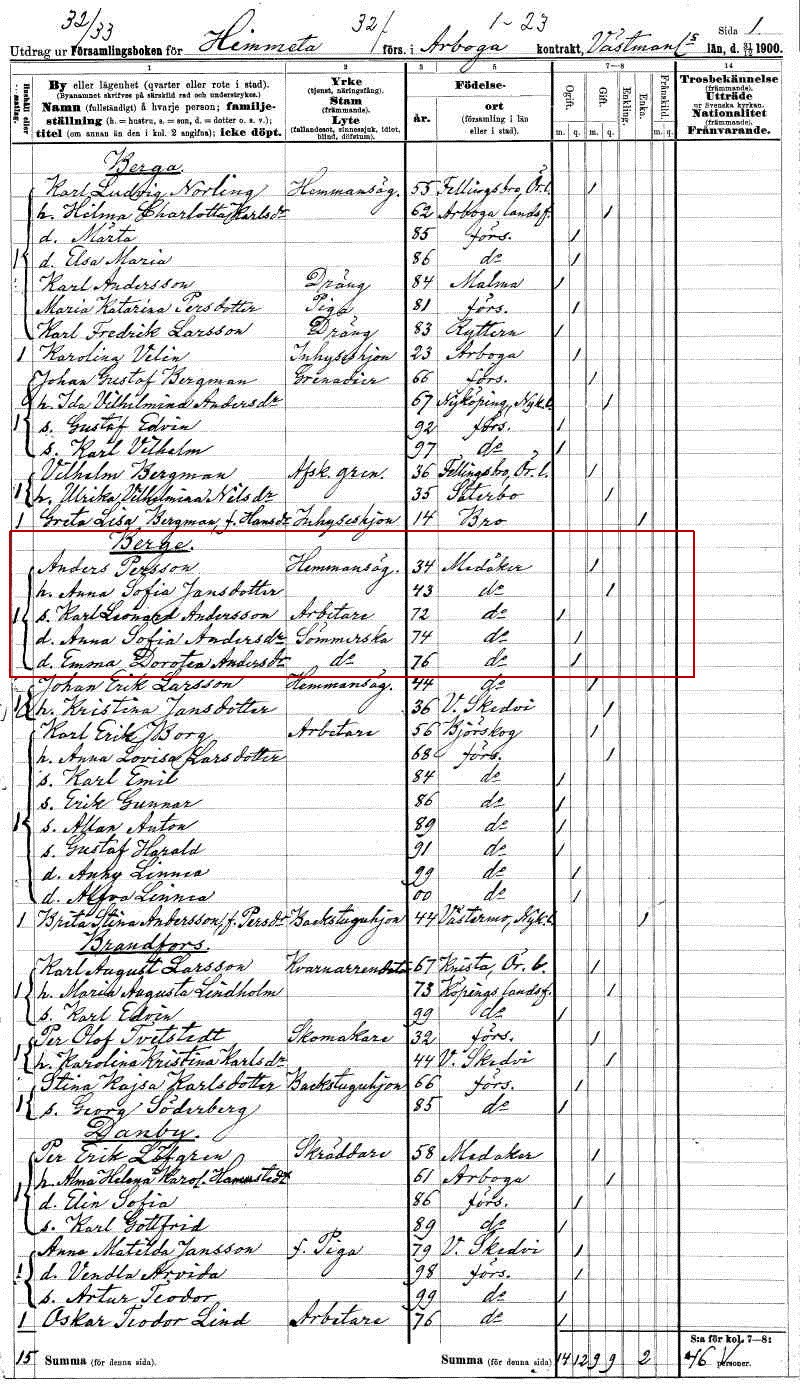 32/33 32/ 1-23 Sida 1.
Utdrag ur Församlingsboken för Himmeta förs. i Arboga kontrakt, Västmanl:s län, d. 31/12 1900.
1 2 3 5 7-8 14
Hushåll eller
By eller lägenhet (qvarter eller rote i stad).
(Byanamnet skrifves på särskild rad och understrykes.)
Namn (fullständigt) å hvarje person; familje-
ställning (h. = hustru, s. = son, d. = dotter o. s. v.);
titel (om annan än den i kol. 2 angifna); icke döpt.
Yrke
(tjenst, näringsfång).
Stam
(främmande).
Lyte
(fallandesot, sinnessjuk, idiot,
blind, döfstum).
år.
Födelse-
ort
(församling i län
eller i stad).
Ogift. Gift. Enkling. Enka. Frånskild.
m. q. m. q. m. q.
Trosbekännelse
(främmande).
Utträde
ur Svenska kyrkan.
Nationalitet
(främmande).
Frånvarande.
Berga.
Karl Ludvig Norling Hemmansäg. 55 Fellingsbro, Ör. l. /
h. Hilma Charlotta Karlsdr 62 Arboga landsf. /
d. Märta 85 förs. /
1 d. Elsa Maria 86 do /
Karl Andersson Dräng 84 Malma /
Maria Katarina Persdotter Piga 81 förs. /
Karl Fredrik Larsson Dräng 83 Ryttern /
1 Karolina Velin Inhyseshjon 23 Arboga /
Johan Gustaf Bergman Grenadier 66 förs. /
h. Ida Vilhelmina Andersdr 67 Nyköping, Nyk. l. /
1 s. Gustaf Edvin 92 förs. /
s. Karl Vilhelm 97 do /
Vilhelm Bergman Afsk. gren. 36 Fellingsbro, Ör. l. /
1 h. Ulrika Vilhelmina Nilsdr 35 Säterbo /
1 Greta Lisa Bergman, f. Hansdr Inhyseshjon 14 Bro /
Berge.
Anders Persson Hemmansäg. 34 Medåker /
h. Anna Sofia Jansdotter 43 do /
1 s. Karl Leonard Andersson Arbetare 72 do /
d. Anna Sofia Andersdr Sömmerska 74 do /
d. Emma Dorotea Andersdr do 76 do /
Johan Erik Larsson Hemmansäg. 44 do /
1 h. Kristina Jansdotter 36 V. Skedvi /
Karl Erik Borg Arbetare 56 Björskog /
h. Anna Lovisa Larsdotter 68 förs. /
s. Karl Emil 84 do /
s. Erik Gunnar 86 do /
1 s. Allan Anton 89 do /
s. Gustaf Harald 91 do /
d. Anny Linnea 99 do /
d. Alfva Linnea 00 do /
1 Brita Stina Andersson, f. Persdr Backstuguhjon 44 Västermo, Nyk. l. /
Brandfors.
Karl August Larsson Kvarnarrendator 67 Knista, Ör. l. /
1 h. Maria Augusta Lindholm 73 Köpings landsf. /
s. Karl Edvin 99 do /
Per Olof Tvetstedt Skomakare 32 förs. /
1 h. Karolina Kristina Karlsdr 44 V. Skedvi /
Stina Kajsa Karlsdotter Backstuguhjon 66 förs. /
1 s. Georg Söderberg 85 do /
Danby.
Per Erik Löfgren Skräddare 58 Medåker /
h. Alma Helena Karol. 61 Arboga /
1 d. Elin Sofia 86 förs. /
s. Karl Gottfrid 89 do /
Anna Matilda Jansson f. Piga 79 V. Skedvi /
1 d. Vendla Arvida 98 förs. /
s. Artur Teodor 99 do /
1 Oskar Teodor Lind Arbetare 76 do /
S:a för kol. 7-8:
15 Summa (för denna sida). Summa (för denna sida) 14 12 9 9 2 46 personer.